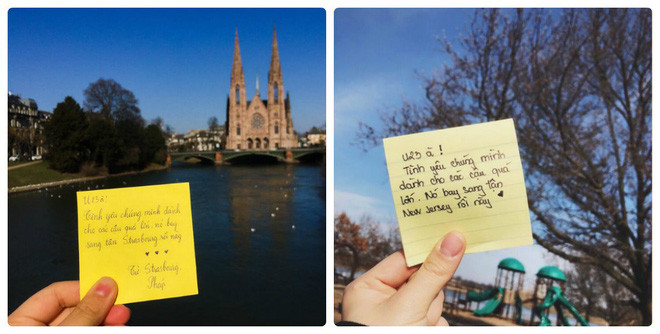 U23 à!
Tình yêu chúng mình dành
cho các cậu quá lớn. nó bay
sang tận Strasbourg rồi này
♥ ♥ ♥
Từ Strasbourg,
Pháp
U23 à !
Tình yêu chúng mình
dành cho các cậu quá
lớn.. Nó bay sang tận
New Jersey rồi này ♥